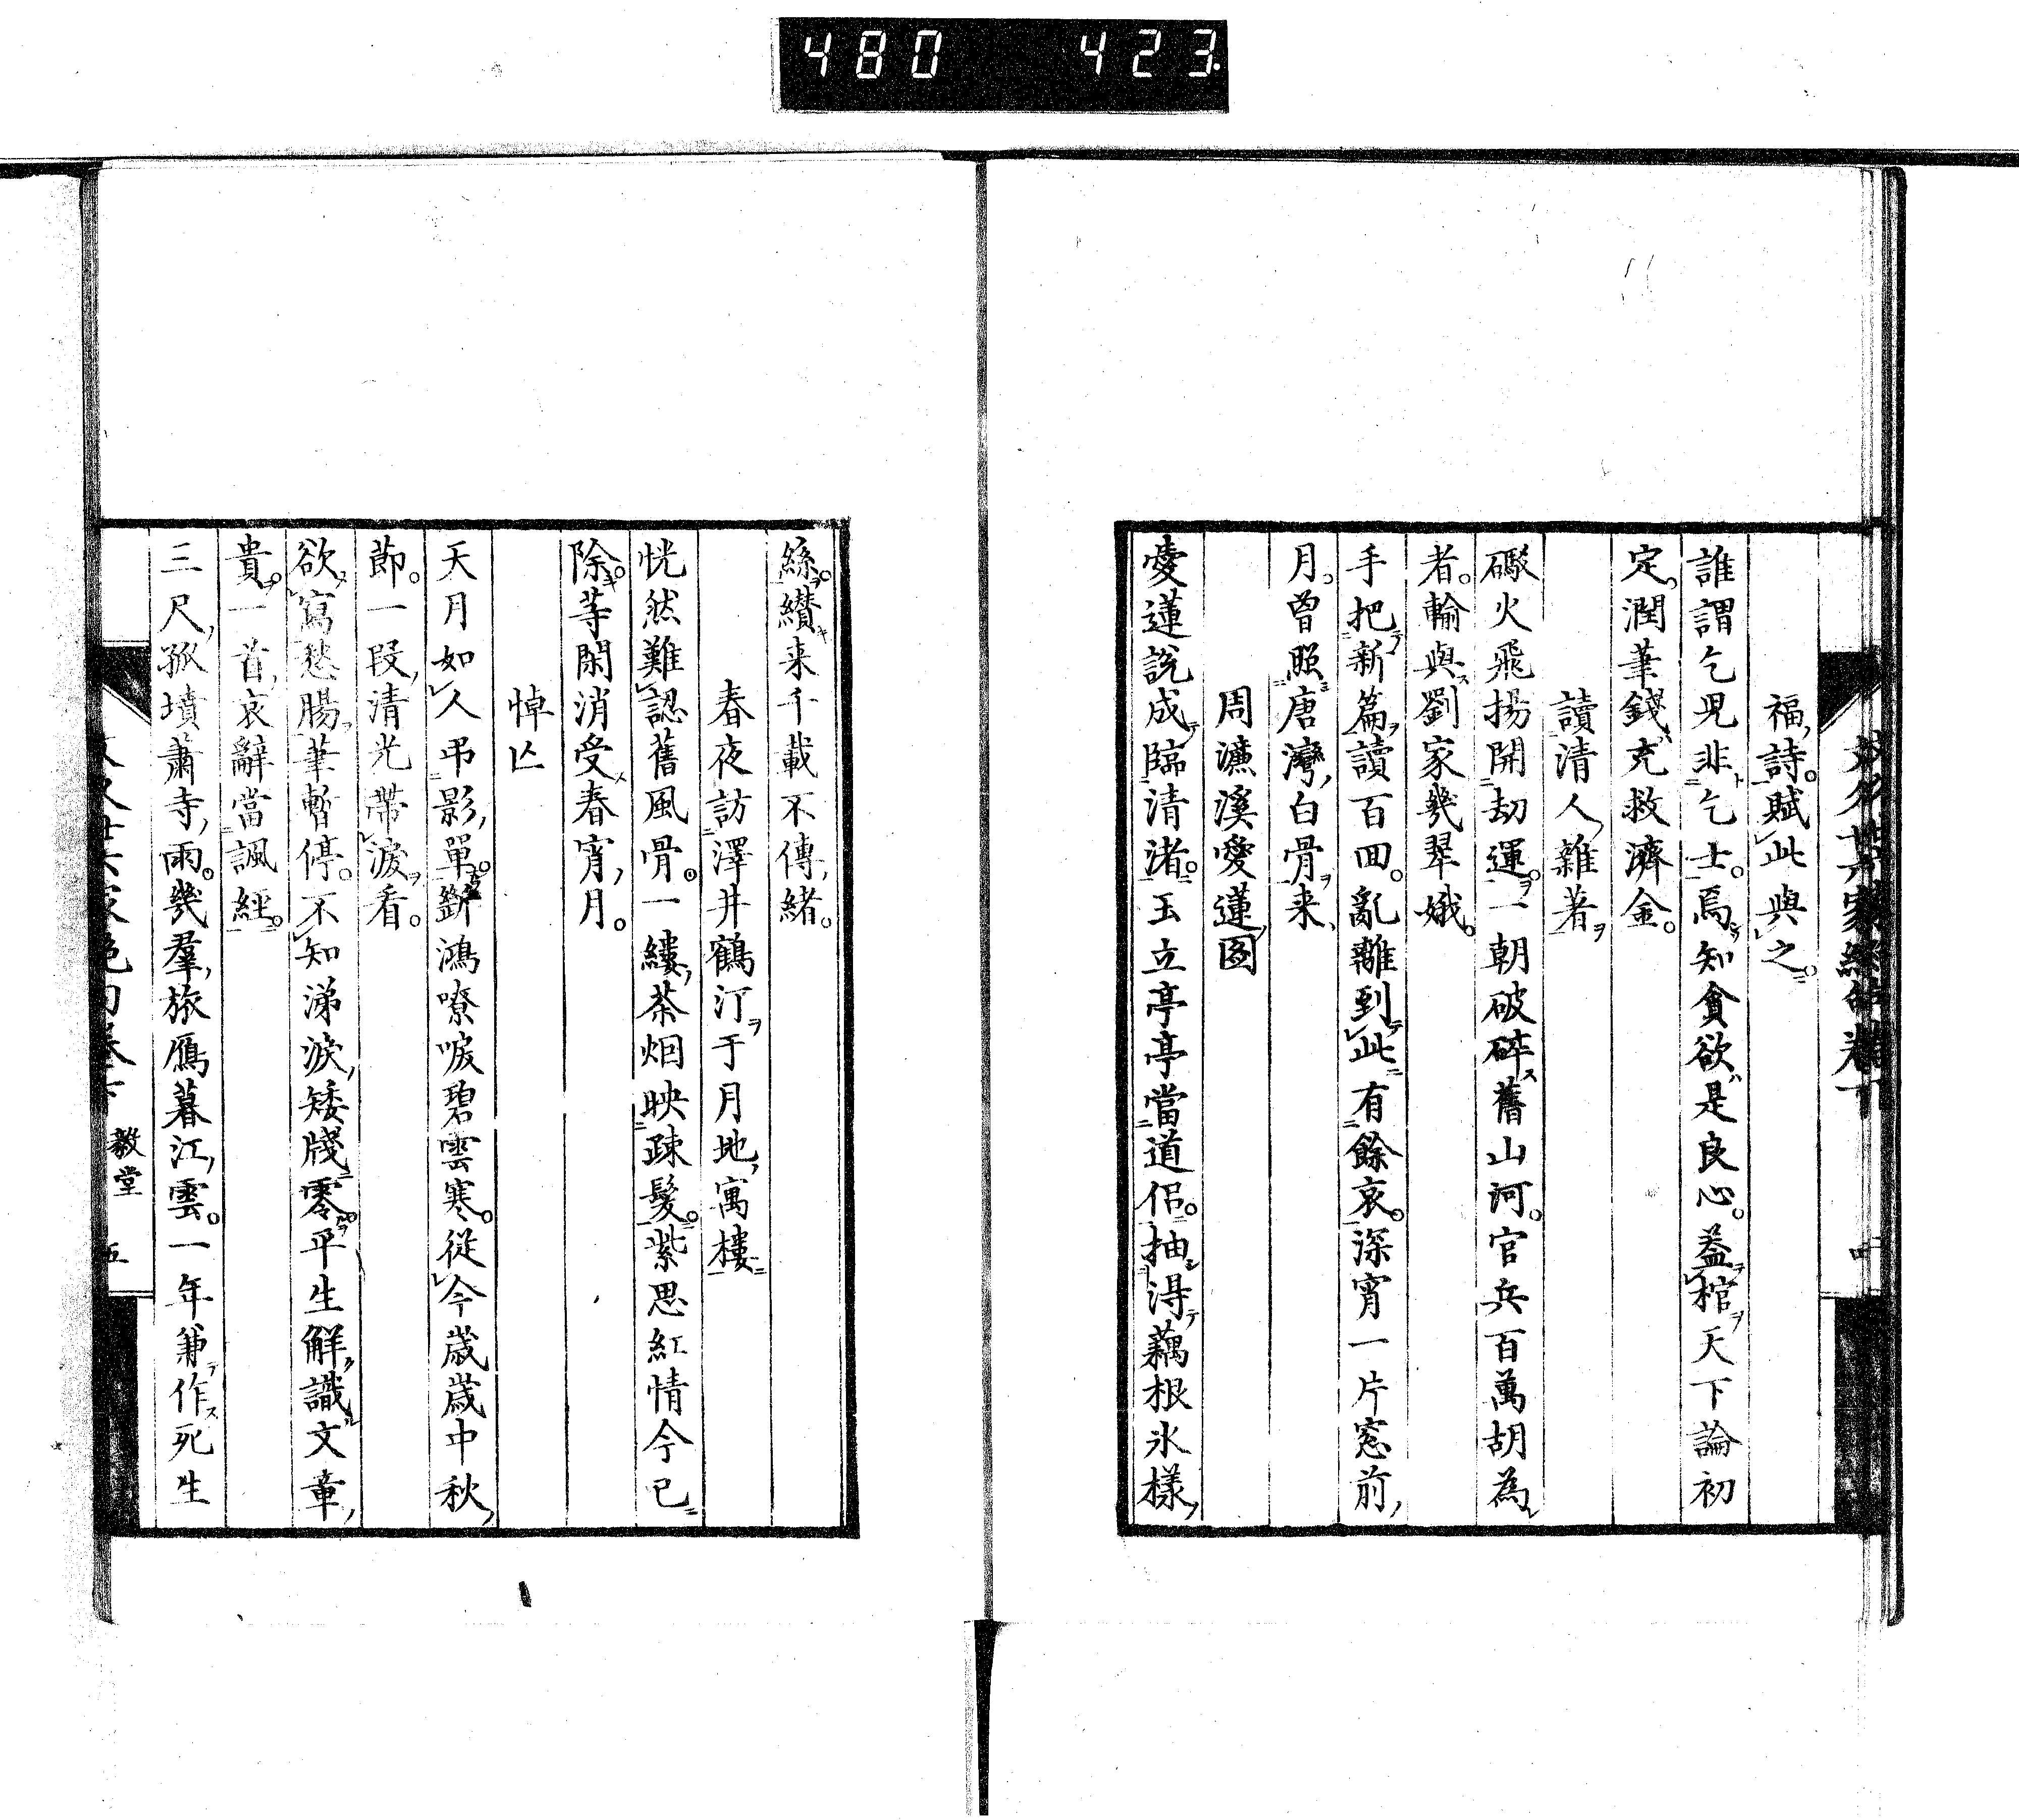 480 423
福詩賦此與之
誰謂乞児非乞士焉知貪欲是良心葢棺天下論初
定潤筆錢充救濟金
讀清人雜著
礮火飛揚開劫運一朝破碎舊山河官兵百萬胡為
者輸與劉家幾翠娥
手把新篇讀百回亂離到此有餘哀深宵一片窓前
月曽照唐灣白骨来
周濂溪愛蓮図
愛蓮說成臨清渚玉立亭亭當道侶抽得藕根氷樣
絲纉来千載不傳緒
春夜訪澤井鶴汀于月地寓樓
恍然難認舊風骨一縷茶烟映疎髪紫思紅情今已
除等閑消受春宵月
悼亾
天月如人弔影單斷鴻嘹唳碧雲寒從今歳歳中秋
節一段清光帶淚看
欲寫愁腸筆暫停不知涕淚矮牋零平生解識文章
貴一首哀辭當諷經
三尺孤墳蕭寺雨幾羣旅鴈暮江雲一年兼作死生
毅堂 五